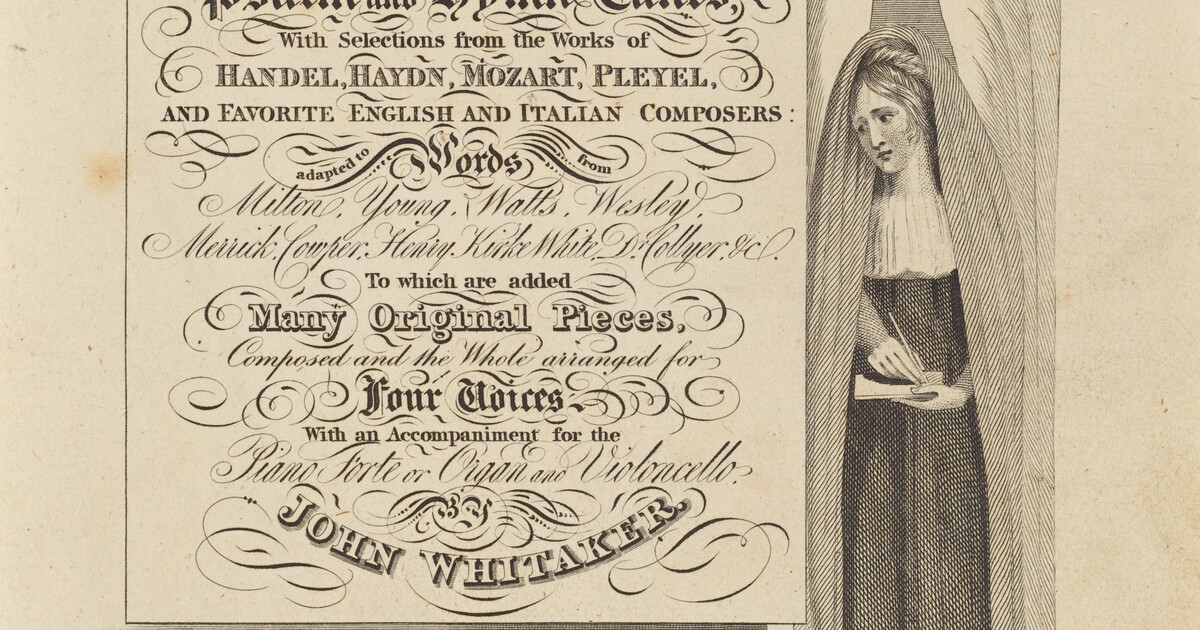 Psalm and Hymn Tunes,
With Selections from the Works of
HANDEL, HAYDN, MOZART, PLEYEL,
AND FAVORITE ENGLISH AND ITALIAN COMPOSERS:
adapted to Words from
Milton, Young, Watts, Wesley,
Merrick, Cowper, Henry Kirke White, Dr. Collyer, &c.
To which are added
Many Original Pieces,
Composed and the Whole arranged for
Four Voices
With an Accompaniment for the
Piano Forte or Organ and Violoncello,
BY
JOHN WHITAKER.